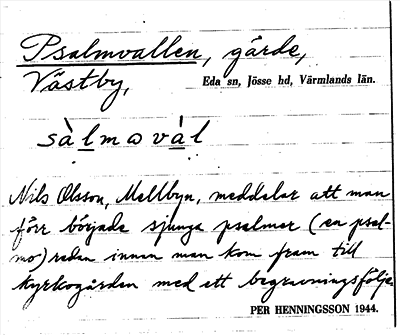 Psalmvallen, gärde,
Västby, Eda sn, Jösse hd, Värmlands län.
sàl̲mɷvàl̲
Nils Olsson, Mellbyn, meddelar att man
förr började sjunga psalmer (en psal-
mo) redan innan man kom fram till
kyrkogården med ett begravningsfölje.
PER HENNINGSSON 1944.